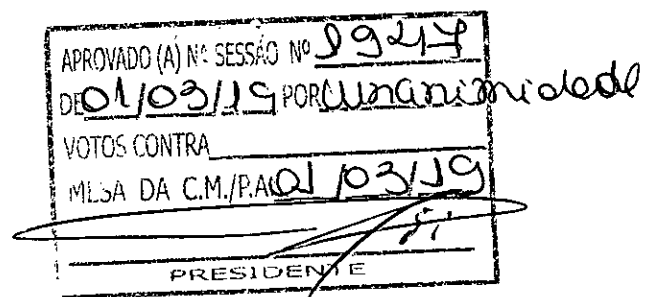 APROVADO (A) Nª SESSÃO Nº 1947
DE 01/03/19 POR Unanimidade
VOTOS CONTRA
MESA DA C.M./P.A 01/03/19
PRESIDENTE